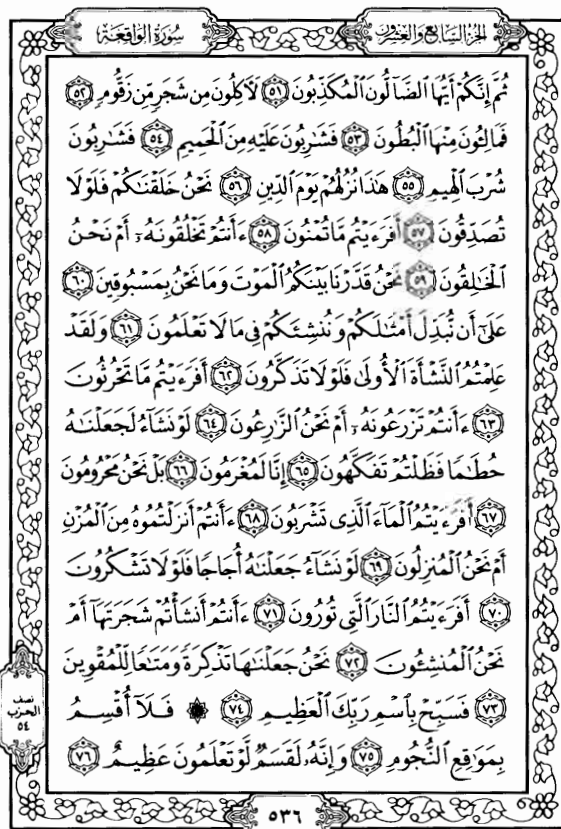 سُورَةُ الوَاقِعَةِ
الجُزْءُ السَّابِعُ وَالعِشْرُونَ
ثُمَّ إِنَّكُمْ أَيُّهَا ٱلضَّآلُّونَ ٱلْمُكَذِّبُونَ ٥١ لَأٓكِلُونَ مِن شَجَرٍ مِّن زَقُّومٍ ٥٢
فَمَالِـُٔونَ مِنْهَا ٱلْبُطُونَ ٥٣ فَشَٰرِبُونَ عَلَيْهِ مِنَ ٱلْحَمِيمِ ٥٤ فَشَٰرِبُونَ
شُرْبَ ٱلْهِيمِ ٥٥ هَٰذَا نُزُلُهُمْ يَوْمَ ٱلدِّينِ ٥٦ نَحْنُ خَلَقْنَٰكُمْ فَلَوْلَا
تُصَدِّقُونَ ٥٧ أَفَرَءَيْتُم مَّا تُمْنُونَ ٥٨ ءَأَنتُمْ تَخْلُقُونَهُۥٓ أَمْ نَحْنُ
ٱلْخَٰلِقُونَ ٥٩ نَحْنُ قَدَّرْنَا بَيْنَكُمُ ٱلْمَوْتَ وَمَا نَحْنُ بِمَسْبُوقِينَ ٦٠
عَلَىٰٓ أَن نُّبَدِّلَ أَمْثَٰلَكُمْ وَنُنشِئَكُمْ فِى مَا لَا تَعْلَمُونَ ٦١ وَلَقَدْ
عَلِمْتُمُ ٱلنَّشْأَةَ ٱلْأُولَىٰ فَلَوْلَا تَذَكَّرُونَ ٦٢ أَفَرَءَيْتُم مَّا تَحْرُثُونَ
٦٣ ءَأَنتُمْ تَزْرَعُونَهُۥٓ أَمْ نَحْنُ ٱلزَّٰرِعُونَ ٦٤ لَوْ نَشَآءُ لَجَعَلْنَٰهُ
حُطَٰمًا فَظَلْتُمْ تَفَكَّهُونَ ٦٥ إِنَّا لَمُغْرَمُونَ ٦٦ بَلْ نَحْنُ مَحْرُومُونَ
٦٧ أَفَرَءَيْتُمُ ٱلْمَآءَ ٱلَّذِى تَشْرَبُونَ ٦٨ ءَأَنتُمْ أَنزَلْتُمُوهُ مِنَ ٱلْمُزْنِ
أَمْ نَحْنُ ٱلْمُنزِلُونَ ٦٩ لَوْ نَشَآءُ جَعَلْنَٰهُ أُجَاجًا فَلَوْلَا تَشْكُرُونَ
٧٠ أَفَرَءَيْتُمُ ٱلنَّارَ ٱلَّتِى تُورُونَ ٧١ ءَأَنتُمْ أَنشَأْتُمْ شَجَرَتَهَآ أَمْ
نَحْنُ ٱلْمُنشِـُٔونَ ٧٢ نَحْنُ جَعَلْنَٰهَا تَذْكِرَةً وَمَتَٰعًا لِّلْمُقْوِينَ
٧٣ فَسَبِّحْ بِٱسْمِ رَبِّكَ ٱلْعَظِيمِ ٧٤ ۞ فَلَآ أُقْسِمُ
بِمَوَٰقِعِ ٱلنُّجُومِ ٧٥ وَإِنَّهُۥ لَقَسَمٌ لَّوْ تَعْلَمُونَ عَظِيمٌ ٧٦
نصف
الحزب
٥٤
٥٣٦